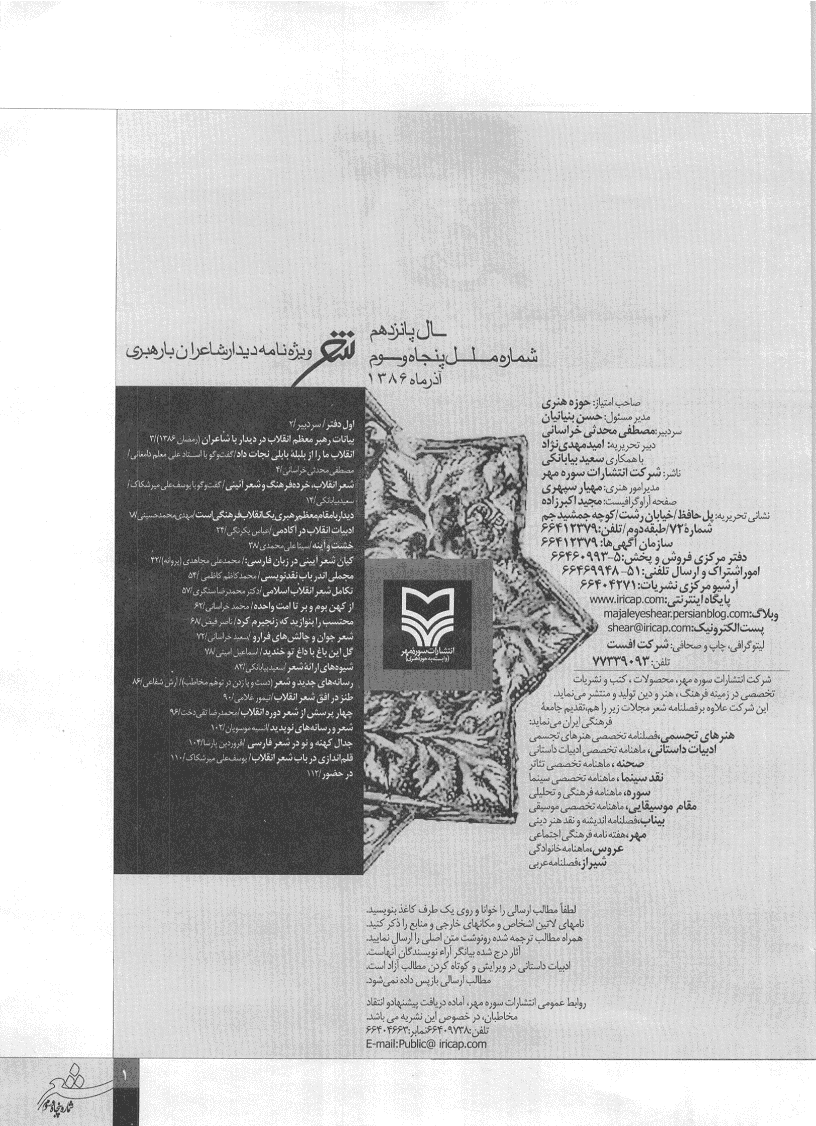 سال پانزدهم
شماره مسلسل پنجاه و سوم
آذرماه ۱۳۸۶
شعر
ویژه‌نامه دیدار شاعران با رهبری
صاحب امتیاز: حوزه هنری
مدیر مسئول: حسن بنیانیان
سردبیر: مصطفی محدثی خراسانی
دبیر تحریریه: امید مهدی‌نژاد
با همکاری سعید بیابانکی
ناشر: شرکت انتشارات سوره مهر
مدیر امور هنری: مهیار سپهری
صفحه آرا و گرافیست: مجید اکبرزاده
نشانی تحریریه: پل حافظ/خیابان رشت/کوچه جمشید جم
شماره ۷۲/طبقه دوم/تلفن: ۶۶۴۱۲۳۷۹
سازمان آگهی‌ها: ۶۶۴۱۲۳۷۹
دفتر مرکزی فروش و پخش: ۵-۶۶۴۶۰۹۹۳
امور اشتراک و ارسال تلفنی: ۵۱-۶۶۴۶۹۹۴۸
آرشیو مرکزی نشریات: ۶۶۴۰۴۲۷۱
پایگاه اینترنتی: www.iricap.com
وبلاگ: majaleyeshear.persianblog.com
پست الکترونیک: shear@iricap.com
لیتوگرافی، چاپ و صحافی: شرکت افست
تلفن: ۷۷۳۳۹۰۹۳
شرکت انتشارات سوره مهر، محصولات، کتب و نشریات
تخصصی در زمینه فرهنگ، هنر و دین تولید و منتشر می‌نماید.
این شرکت علاوه بر فصلنامه شعر مجلات زیر را هم تقدیم جامعهٔ
فرهنگی ایران می‌نماید:
هنرهای تجسمی، فصلنامه تخصصی هنرهای تجسمی
ادبیات داستانی، ماهنامه تخصصی ادبیات داستانی
صحنه، ماهنامه تخصصی تئاتر
نقد سینما، ماهنامه تخصصی سینما
سوره، ماهنامه فرهنگی و تحلیلی
مقام موسیقایی، ماهنامه تخصصی موسیقی
بیناب، فصلنامه اندیشه و نقد هنر دینی
مهر، هفته نامه فرهنگی اجتماعی
عروس، ماهنامه خانوادگی
شیراز، فصلنامه عربی
اول دفتر/ سردبیر/۲
بیانات رهبر معظم انقلاب در دیدار با شاعران (رمضان ۱۳۸۶)/۳
انقلاب ما را از بلیهٔ بابلی نجات داد/ گفت‌وگو با استاد علی معلم دامغانی/
مصطفی محدثی خراسانی/۴
شعر انقلاب، خرده فرهنگ و شعر آئینی/ گفت‌وگو با یوسف علی میرشکاک/
سعید بیابانکی/۱۲
دیدار با مقام معظم رهبری یک انقلاب فرهنگی است/ مهدی محمدحسینی/۱۸
ادبیات انقلاب در آکادمی/ عباس بکرنگی/۲۴
خشت و آینه/ سینا علی محمدی/۳۸
کیان شعر آیینی در زبان فارسی:/ محمدعلی مجاهدی (پروانه)/۴۲
مجملی اندر باب نقدنویسی/ محمدکاظم کاظمی/۵۴
تکامل شعر انقلاب اسلامی/ دکتر محمدرضا سنگری/۵۷
از کهن بوم و بر تا امت واحده/ محمد خراسانی/۶۲
محتسب را بنوازید که زنجیرم کرد/ ناصر فیض/۶۸
شعر جوان و چالش‌های فرارو/ سعید خراسانی/۷۲
گل این باغ با داغ تو خندید/ اسماعیل امینی/۷۸
شیوه‌های ارائهٔ شعر/ سعید بیابانکی/۸۲
رسانه‌های جدید و شعر (دست و پا زدن در توهم مخاطب)/ آرش شفاعی/۸۶
طنز در افق شعر انقلاب/ تیمور غلامی/۹۰
چهار پرسش از شعر دوره انقلاب/ محمدرضا تقی‌دخت/۹۶
شعر و رسانه‌های نوپدید/ انسیه موسویان/۱۰۲
جدال کهنه و نو در شعر فارسی/ فروردین پارسا/۱۰۴
قلم‌اندازی در باب شعر انقلاب/ یوسف علی میرشکاک/۱۱۰
در حضور/۱۱۲
انتشارات سوره مهر
(وابسته به حوزه هنری)
لطفاً مطالب ارسالی را خوانا و روی یک طرف کاغذ بنویسید.
نامهای لاتین اشخاص و مکانهای خارجی و منابع را ذکر کنید.
همراه مطالب ترجمه شده رونوشت متن اصلی را ارسال نمایید.
آثار درج شده بیانگر آراء نویسندگان آنهاست.
ادبیات داستانی در ویرایش و کوتاه کردن مطالب آزاد است.
مطالب ارسالی بازپس داده نمی‌شود.
روابط عمومی انتشارات سوره مهر، آماده دریافت پیشنهاد و انتقاد
مخاطبان، در خصوص این نشریه می باشد.
تلفن: ۶۶۴۰۹۷۳۸ نمابر: ۶۶۴۰۴۶۶۳
E-mail:Public@ iricap.com
۱
شعر
شماره پنجاه و سوم